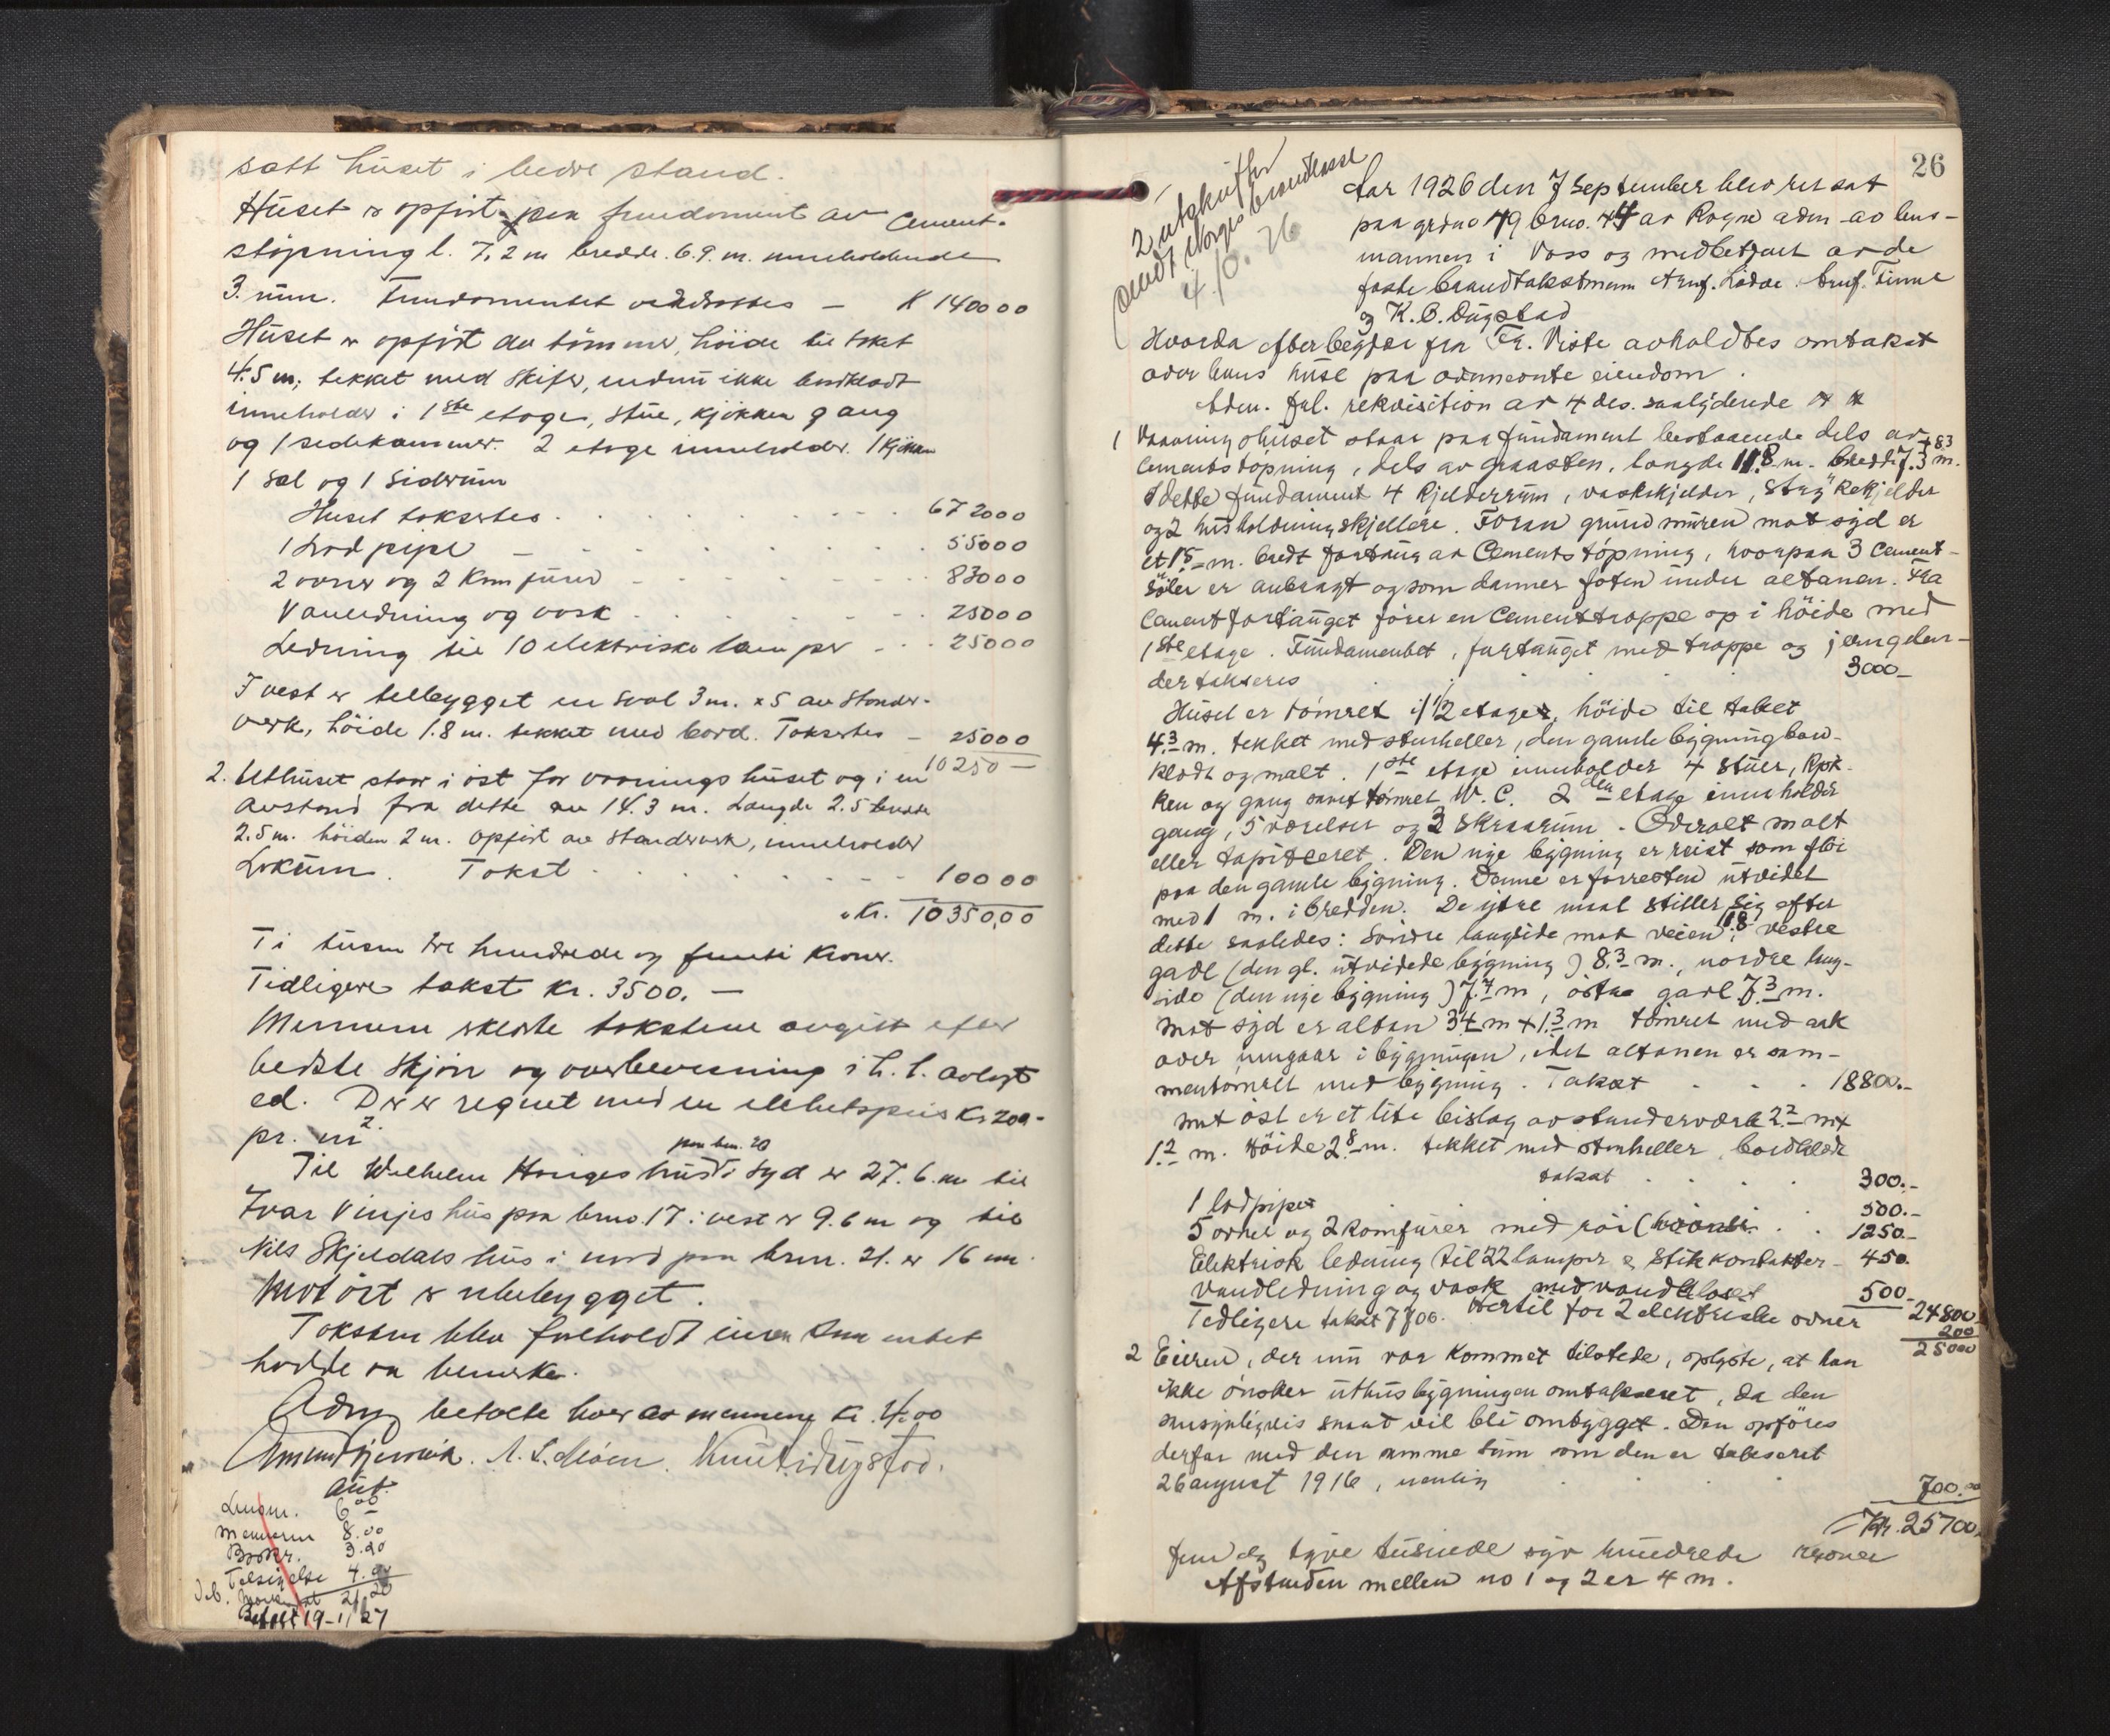 satt huset i bedre stand.
Huset er opfört paa fundament av Cement-
stöpning l. 7,2 m bredde 6.9. m. inneholdende
3. rum. Fundamentet verdsættes — K 1400 00
Huset er opfört av tömmer, höide til taket
4.5 m; tekket med skifer, endnu ikke bordklædt
inneholder i 1ste etage, stue, kjökken gang
og 1 sedekammer. 2 etage inneholder. 1 kjöken
1 sal og 1 siderum
Huset takseres . . . 6720 00
1 Lodpipe — . . . 550 00
2 ovner og 2 Komfurer - - - 830 00
Vandledning og vask . . . 250 00
Ledning til 10 elektriske lamper - . . 250 00
I vest er tilbygget en sval 3 m. x 5 av stender-
verk, höide 1.8 m. tekket med bord. Takseres — 250 00
10250 —
2. Uthuset staar i öst for vaaningshuset og i en
avstand fra dette av 14.3 m. Længde 2.5 bredde
2.5 m. höiden 2 m. opfört av standverk, inneholder
Lokum. Takst . . . 100 00
Kr. 10350,00
Ti tusen tre hundrede og femti Kroner.
Tidligere takst Kr. 3500. —
Mennene erklærte taksten avgitt efter
bedste skjön og overbevisning i h. t. avlagt
ed. Der er regnet med en enhetspris Kr 200-
pr. m2.
paa brn. 20
Til Wilhelm Honges hus i syd er 27. 6. m til
Ivar Vinjes hus paa brno. 17 i vest er 9.6 m og til
Nils Skjeldals hus i nord paa brnr. 21. er 16 m.
Mot öst er ubebygget.
Taksten blev forholdt eieren som intet
hadde at bemerke.
Adm betalte hver av mennene Kr. 4.00
A. L. Möen. Knut Dugstad.
Aut.
Lensm. 6 00
Mennene 8.00
Bookr. 3.20
Tilsigelse 4.00
21,20
Betalt 19-1/27
26
2 utskrifter
sendt Norges brandkasse
4/10. 26
Aar 1926 den 7 September blev ret sat
paa grdno 49 brno. 44 av Rogne adm av lens-
mannen i Voss og medbetjent av de
faste brandtakstmenn Arnf. Lödve. Finne
og K. B. Dugstad
Hvorda efter begjær fra Fr. Viste avholdtes omtakst
over hans huse paa ovennevnte eiendom.
Adm. frl. rekvisition av 4 ds. saalydende
1 Vaaningshuset staar paa fundament bestaaende dels av + 83
cementstöpning, dels av graasten, længde 11.8 m. bredde 7.3 m.
I dette fundament 4 kjelderrum, vaskekjelder, strykekjelder
og 2 husholdningskjellere. Foran grundmuren mot syd er
et 1.5 m. bredt fortaug av Cementstöpning, hvorpaa 3 cement-
söiler er anbragt og som danner foten under altanen. Fra
cementfortauget förer en Cementtrappe op i höide med
1ste etage. Fundamentet, fortauget med trappe og jerngelen-
der takseres . . . 3000 —
Huset er tömret i 1 1/2 etager, höide til taket
4.3 m. tekket med stenheller, den gamle bygning bord-
klædt og malt. 1ste etage inneholder 4 stuer, kjök-
ken og gang samt tömret W. C. 2den etage inneholder
gang, 5 værelser og 3 skraarum. Overalt malt
eller tapitceret. Den nye bygning er reist som flöi
paa den gamle bygning. Denne er forresten utvidet
med 1 m. i bredden. De ydre maal stiller sig efter
dette saaledes: Söndre langside mot veien 11.8 vestre
gavl (den gl. utvidede bygning) 8.3 m., nordre lang-
side (den nye bygning) 7.4 m, östre gavl 7.3 m.
mot syd er altan 3.4 m + 1.3 m tömret med ark
over inngaar i bygningen, idet altanen er sam-
mentömret med bygning. Takst . . . 18800.—
Mot öst er et lite bislag av standerverk 2.2 m x
1.2 m. Höide 2.8 m. tekket med stenheller, bordklædt
takst . . . 300.—
1 lodpipe . . . 500.—
5 ovner og 2 komfurer med rör . . 1250.—
Elektrisk ledning til 22 lamper & stikkontakter — 450.
Vandledning og vask med vandkloset 500.—
Tidligere takst 7700. Hertil for 2 elektriske ovner 24800
200
25000
2 Eieren, der nu var kommet tilstede, oplyste, at han
ikke önsker uthusbygningen omtakseret, da den
ansynligvis snart vil bli ombygget. Den opföres
derfor med den samme sum som den er takseret
26 august 1916, nemlig . . . 700.00
Kr. 25700.
fem og tyve tusinde syv hundrede kroner
Afstanden mellem no 1 og 2 er 4 m.